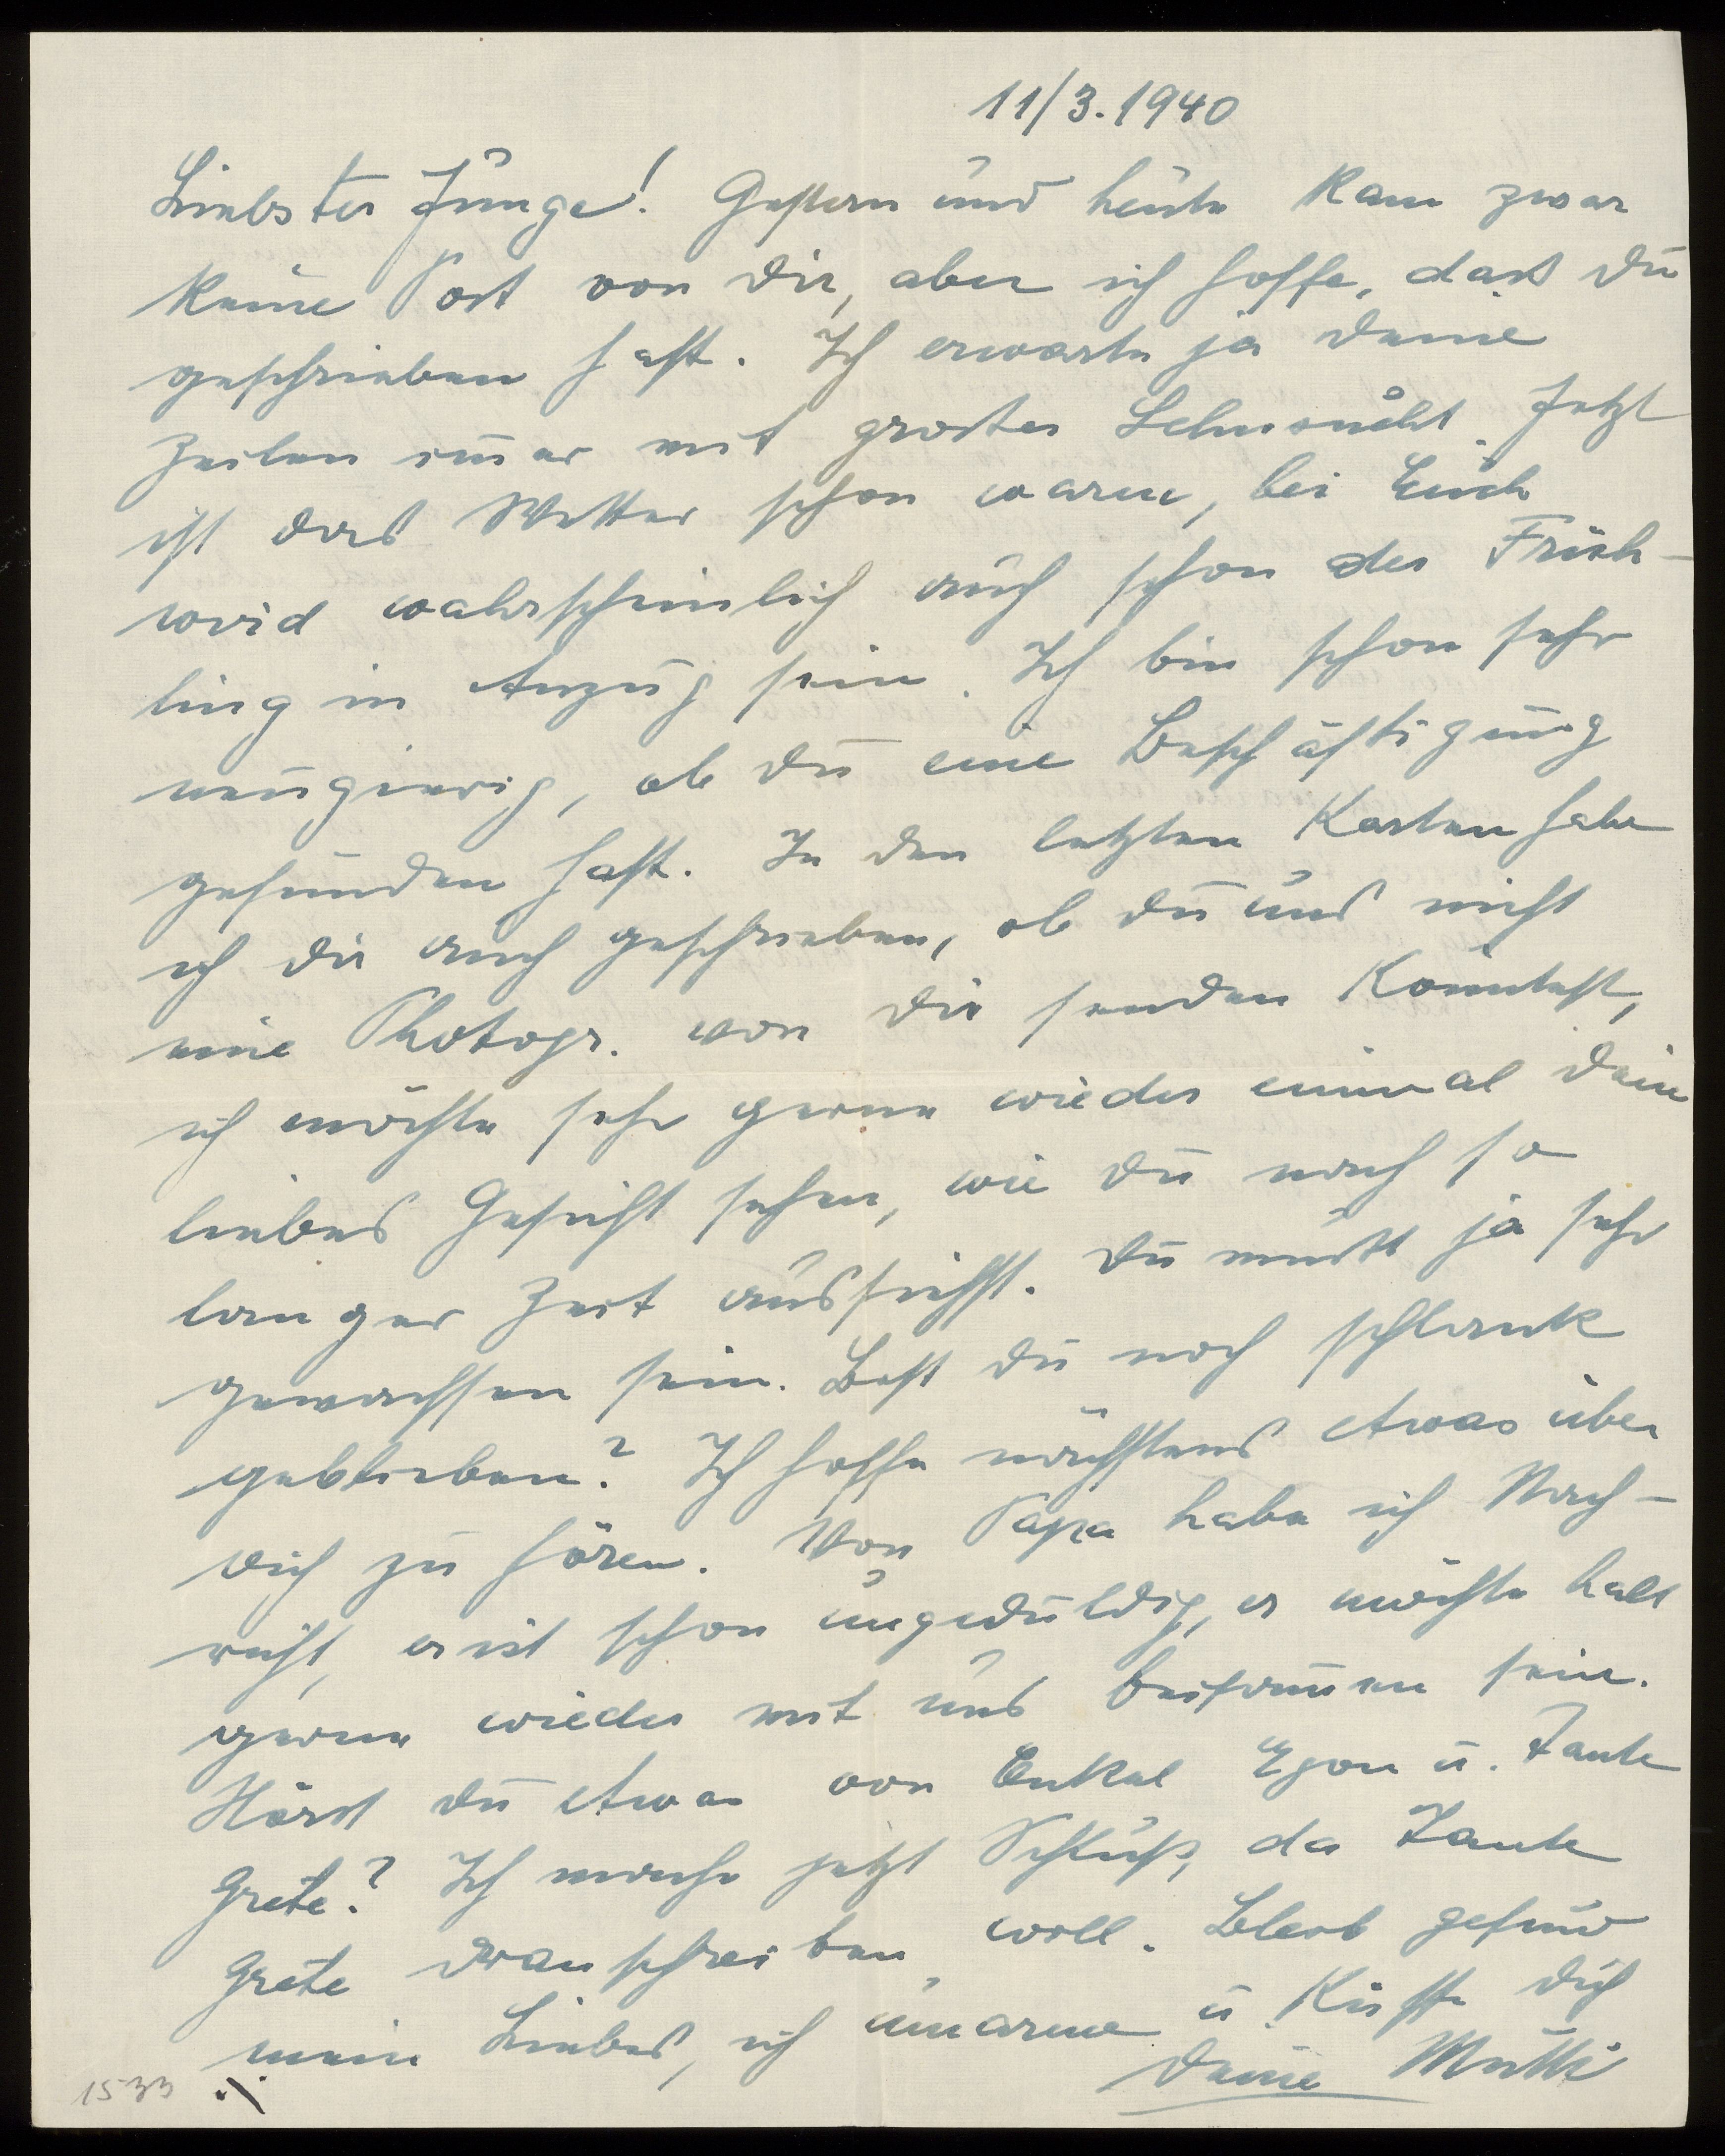 11/3.1940
Liebster Junge! Gestern und heute kam zwar
keine Post von dir, aber ich hoffe, dass du
geschrieben hast. Ich erwarte ja deine
Zeilen im̄er mit groster Sehnsucht. Jetzt
ist das Wetter schon warm, bei Euch
wird wahrscheinlich auch schon der Früh-
ling in Anzug sein. Ich bin schon sehr
neugierig, ob du eine Beschäftigung
gefunden hast. In den letzten Karten habe
ich dir auch geschrieben, ob du uns nicht
eine Photogr. von dir senden könntest,
ich möchte sehr gerne wieder einmal dein
liebes Gesicht sehen, wie du nach so
langer Zeit aussiehst. Du musst ja sehr
gewachsen sein. Bist du noch schlank
geblieben? Ich hoffe nächstens etwas über
dich zu hören. Von Papa habe ich Nach-
richt, er ist schon ungeduldig, er möchte halt
gerne wieder mit uns beisam̄en sein.
Hörst du etwas von Onkel Egon u. Tante
Grete? Ich mache jetzt Schluß, da Tante
Grete dranschreiben will. Bleib gesund
mein Liebes, ich umarme u. küsse dich
deine Mutti
1533 ./.